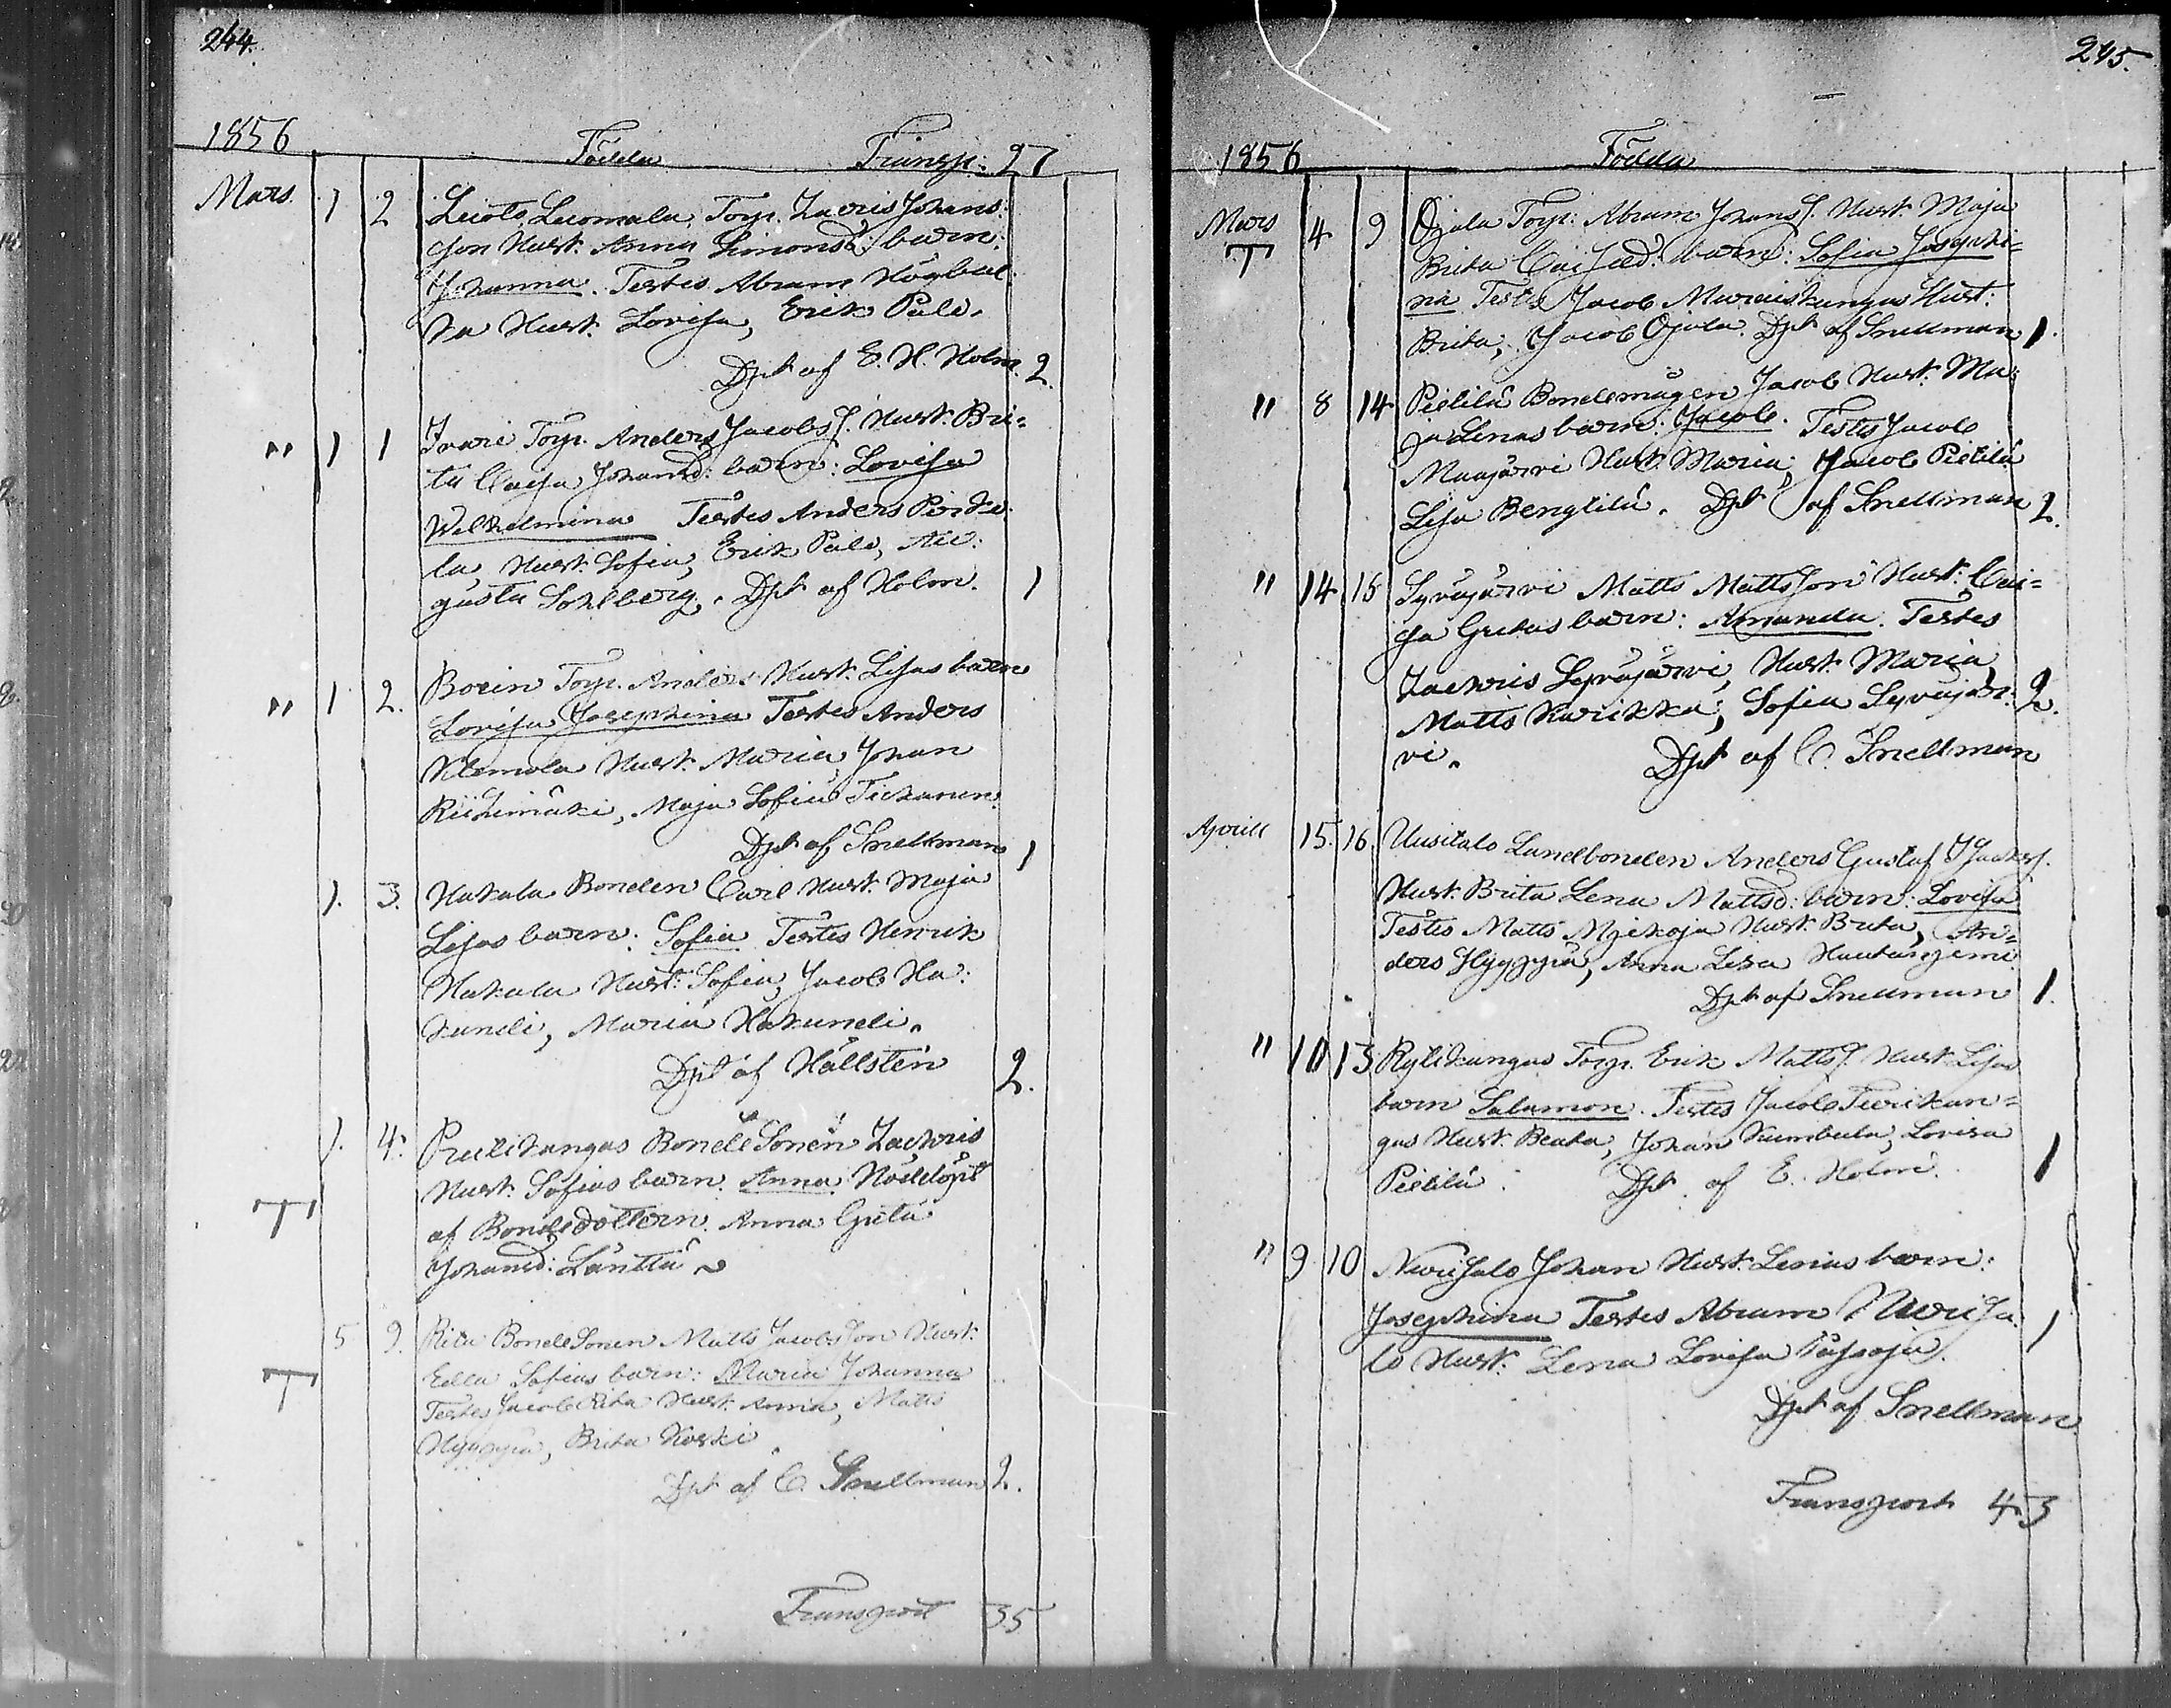 244.
1856 Födda Transp. 27
Mars. 1 2 Luoto Luomala, Torp. Zacris Johans:
son Hust. Anna Simonsd: barn:
Johanna. Testes Abram Högbac:
ka Hust. Lovisa, Erik Palo.
Dpt af E. H. Holm. 2.
" 1 1 Iwari Torp. Anders Jacobss. Hust. Bri:
ta Caisa Johansd: barn: Lovisa
Wilhelmina Testes Anders
la, Hust. Sofia, Erik Palo, Au:
gusta Sohlberg. Dpt af Holm. 1
" 1 2. Torp. Anders Hust. Lisas barn
Lovisa Josephina Testes Anders
Klemola Hust. Maria, Johan
Riihimäki, Maja Sofia
Dpt af Snellman 1
1. 3. Hakala Bonden Carl Hust. Maja
Lisas barn: Sofia Testes Henrik
Hakala Hust: Sofia, Jacob Ha:
kundi, Maria Hakundi.
Dpt af Hällsten 2.
1. 4. Paulikangas BondeSonen Zachris
Hust. Sofias barn. Anna. Nöddöpt
T af Bondedottern Anna Greta
Johansd: Länttä
5 9. Rita BondeSonen Matts Jacobsson Hust:
T Edla Sofias barn: Maria Johanna
Testes Jacob Rita Hust. Anna, Matts
Hyyppä, Brita Koski.
Dpt af C. Snellman 2.
Transport 35
245.
1856 Födda
Mars 4 9 Ojala Torp: Abram Johans S. Hust. Maja
T Brita barn: Sofia Josephi=
na Testes Jacob Hust:
Brita, Jacob Ojala. Dpt af Snellman 1.
" 8 14 Pietilä Bondemågen Jacob Hust: Ma:
ja Lenas barn: Jacob. Testes Jacob
Maajärvi Hust. Maria, Jacob Pietilä
Lisa Bengtilä. Dpt af Snellman 2.
" 14 15 Syväjärvi Matts Mattsson Hust: Cai=
sa Gretas barn: Amanda. Testes
Zachris Syväjärvi, Hust. Maria,
Matts Karikka, Sofia Syväjär: 2.
vi. Dpt af C. Snellman
Aprill 15. 16. Uusitalo Landbonden Anders Gustaf
Hust. Brita Lena Mattsd: barn: Lovisa
Testes Matts Hust. Brita, An=
ders Hyyppä, Anna Lisa
Dpt af Snellman 1.
" 10 13 Torp. Erik Matts S. Hust. Lisas
barn Salamon. Testes Jacob
gas Hust. Beata, Johan Lovisa
Pietilä. Dpt. af E. Holm. 1
" 9 10 Johan Hust. Lenas barn:
Josephina Testes Abram 1
lo Hust. Lena Lovisa
Dpt af Snellman
Transport 43